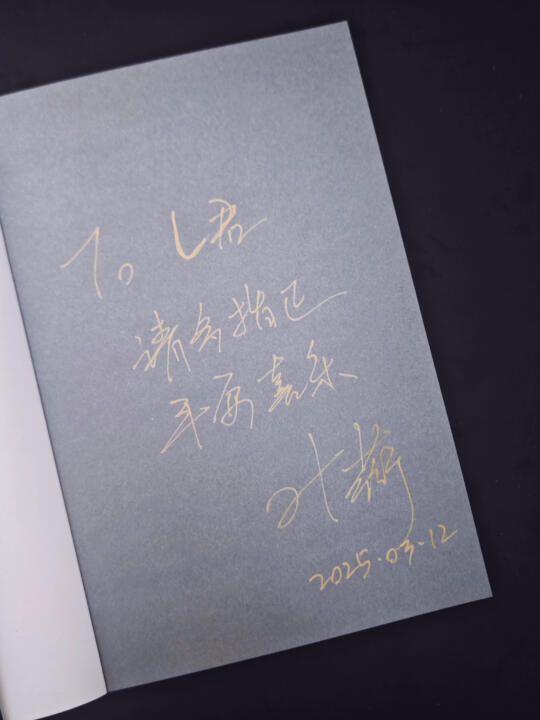 To L君
请多指正
平安喜乐
叶
2025.03.12